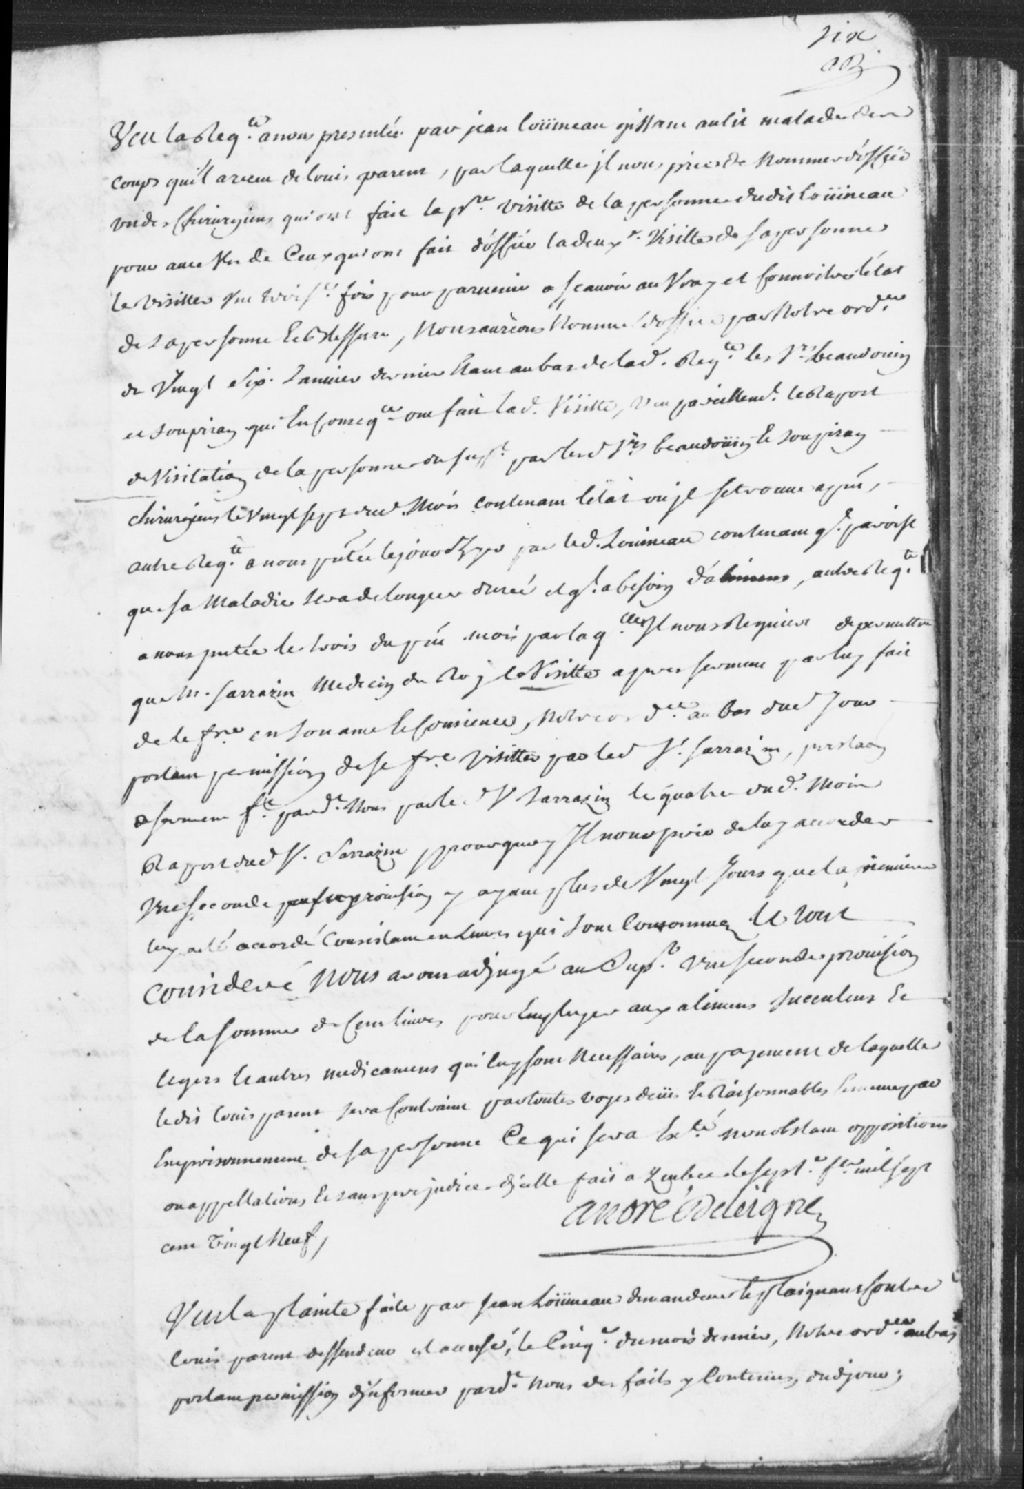 six
Veu la Req.te a nous presentée par jean Loüineau gissant au lit malade des
coups quil a receu de Louis parent, par laquelle jl nous prie de Nommer d'office
un des chirurgiens qui ont fait la p.re visitte de la personne dudit Loüineau
pour avec un de Ceux qui ont fait d'office la deux.e Visitte de sa personne
le visitter une trois.e fois pour parvenir a sçavoir au Vray et Connoitre l'état
de sa personne Et blessure, Nous aurions Nommé d'office par Notre ord.ce
de Vingt Six Janvier dernier Etant au bas de lad. Req.te les S.rs beaudouin
et soupiran qui En Conseq.ce ont fait lad. Visitte, Veu pareillem.t le Raport
de Visitation de la personne du Sup.t par lesd S.rs beaudoüin Et soupiran
chirurgiens le Vingt sept dud. Mois contenant l'état ou jl se trouve
autre Req.te a nous p̃ntée le jour d'hyer par led. Loüineau contenant q.l paroist
que sa Maladie sera de longue durée et q.l a besoin d'alimens, autre Req.te
a nous p̃ntée le trois du p̃nt mois par laq.elle Jl nous Requiert de permettre
que M. Sarrazin Medecin du Roy le Visitte apres serment par luy fait
de le f.re en son ame Et Consience, Notre ord.ce au bas dud Jour
portant permission de se f.re visitter par led S.r Sarrazin, prestaon
de serment f.t pard.t Nous par led S.r Sarrazin le quatre dud. Mois
Raport dud S.r Sarrazin pourquoy Jl nous prie de luy accorder
Une seconde provision y ayant plus de Vingt Jours que la premiere
luy a eté accordé Consistant en Livres qui sont Consommez Le tout
Consideré Nous avons adjugé au Sup.t Une seconde provision
de la somme de Cent livres pour Employer aux alimens succulens Et
legers Et autres medicamens qui luy sont Necessaires, au payement de laquelle
ledit Louis parent sera Contraint par toutes voyes deües Et Raisonnables Et meme par
Emprisonnement de sa personne Ce qui sera Ex.té nonobstant oppositions
ou appellations Et sans prejudice d'jcelle fait a Quebec le sept.e f.er mil sept
cent Vingt Neuf,
André de Leigne
Veu la plainte faite par Jean Loüineau demandeur Et plaignant Contre
Louis parent deffendeur et accusé, le Cinq.e du mois dernier, Notre ord.ce au bas
portant permission d'jnformer pard.t Nous des faits y Contenus, dud jour;